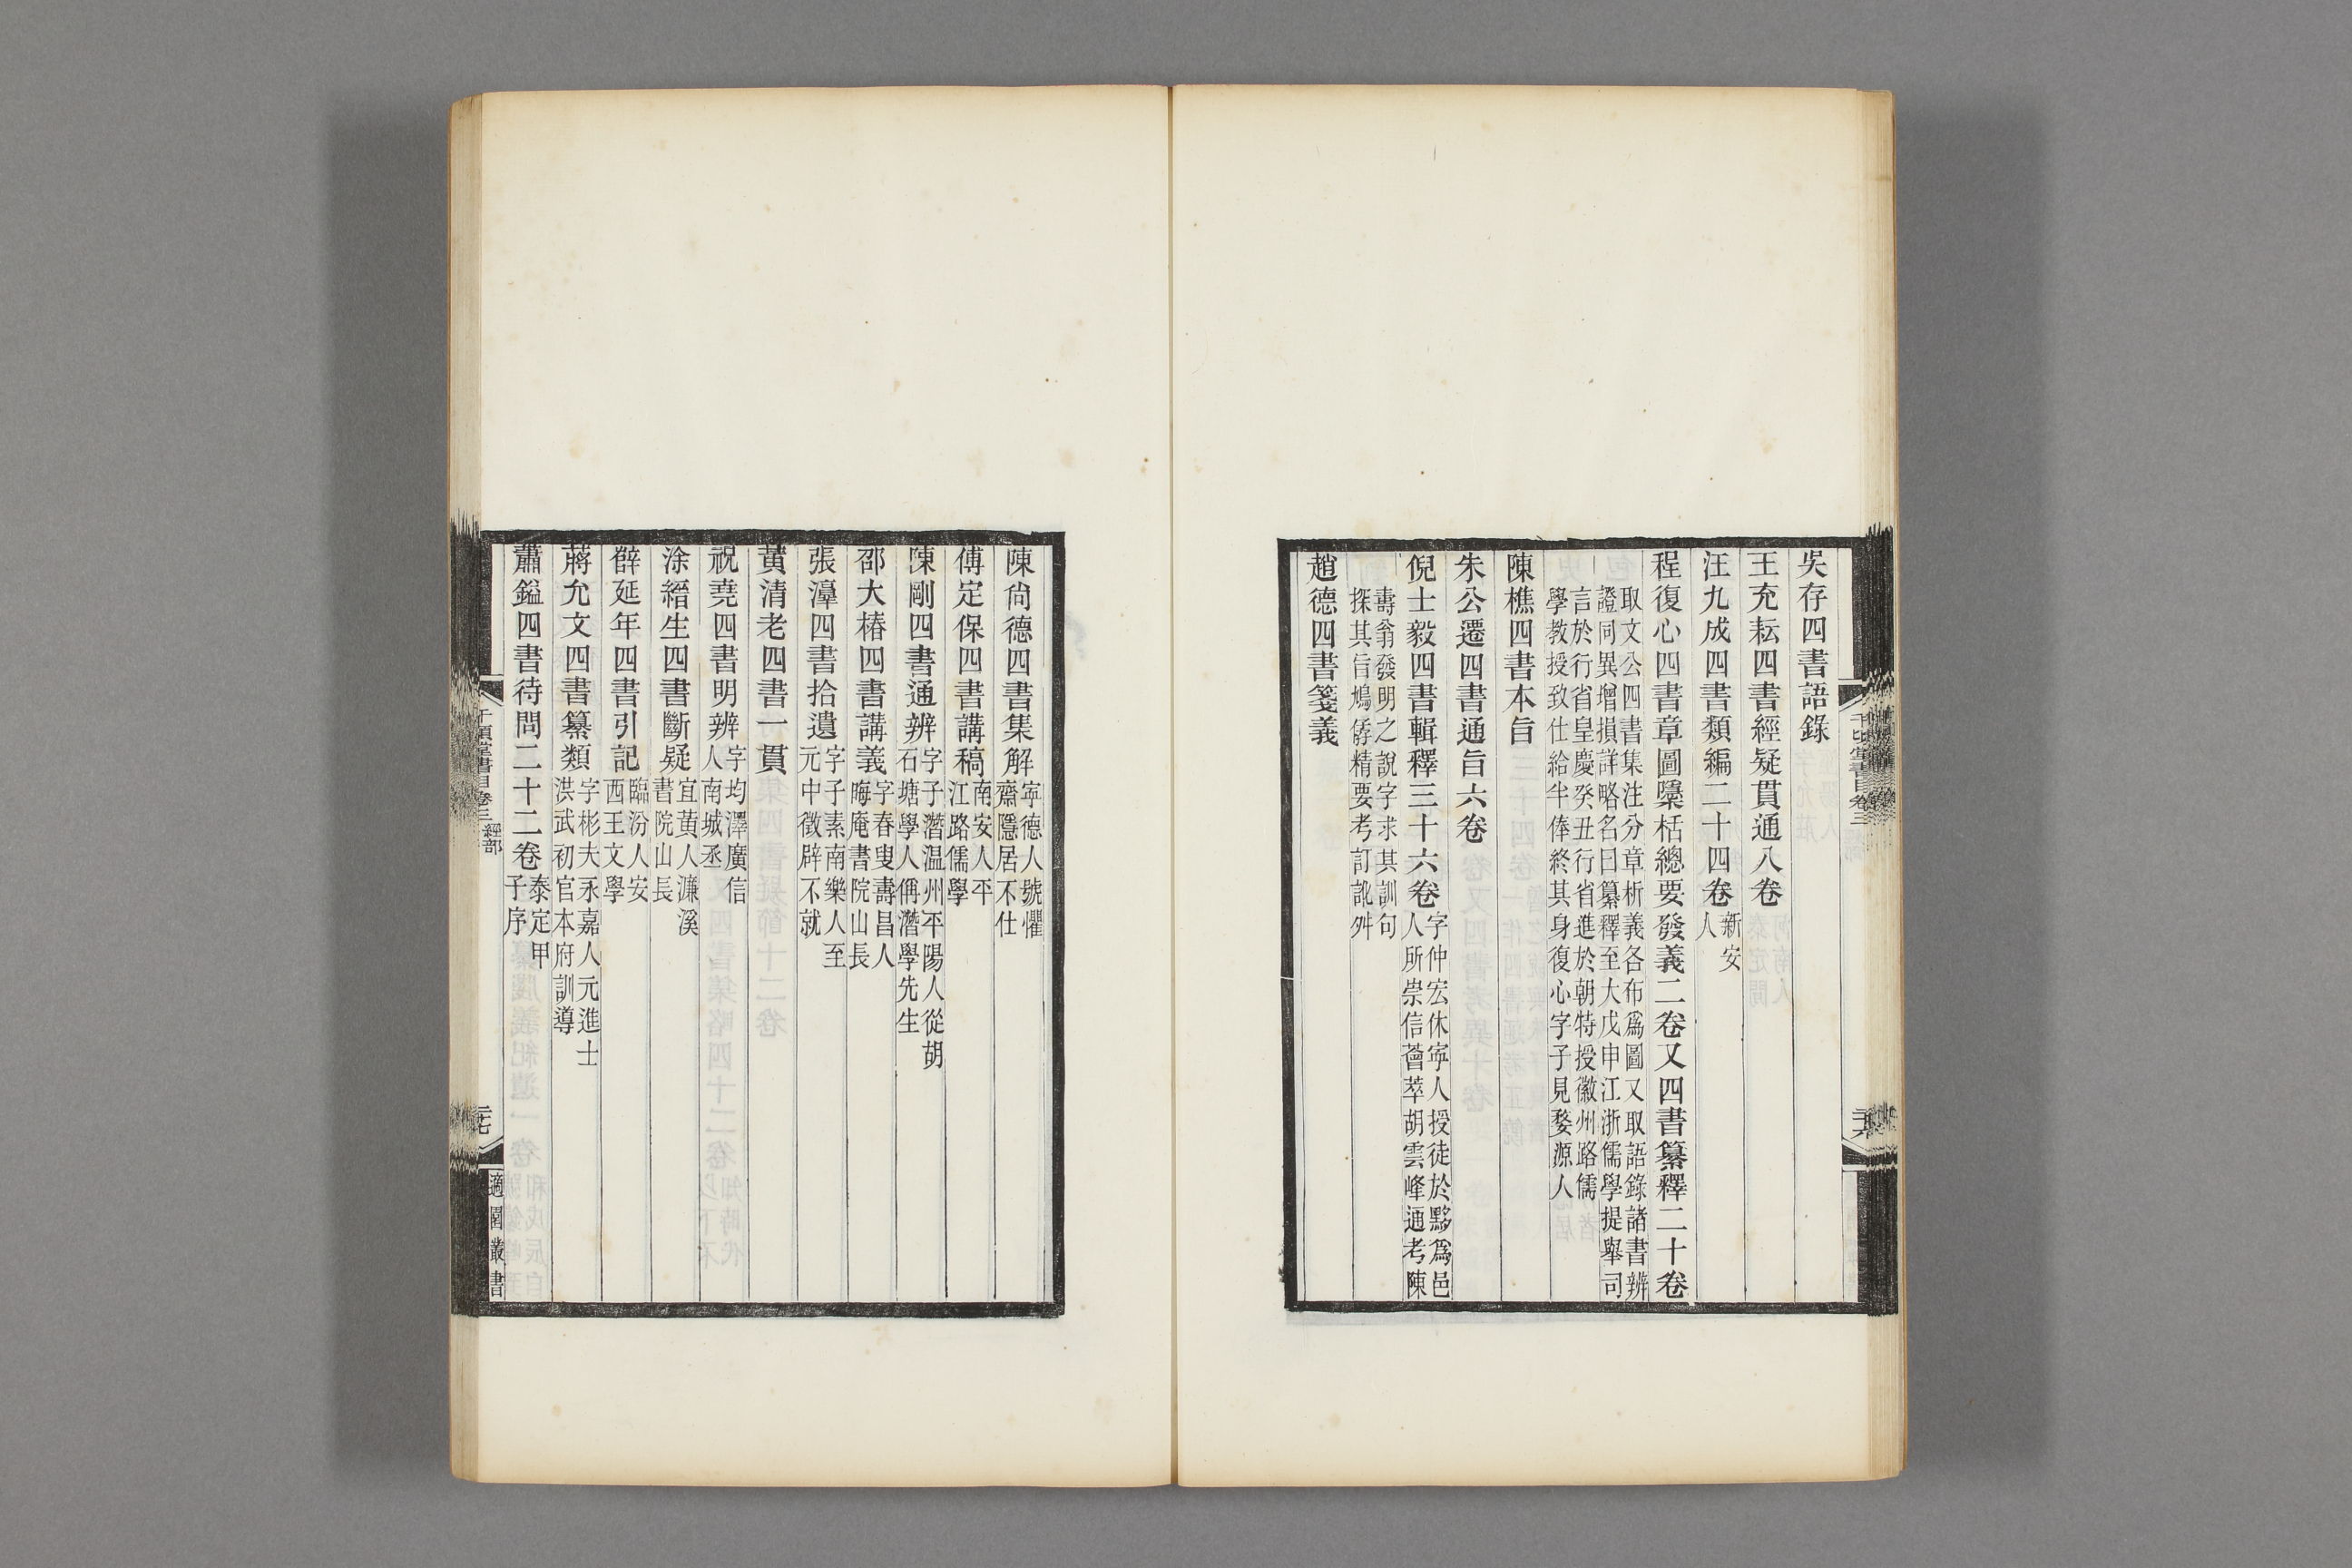 吳存四書語錄
王充耘四書經疑貫通八卷
汪九成四書類編二十四卷新安
人
程復心四書章圖檃栝總要發義二卷又四書纂釋二十卷
取文公四書集注分章析義各布爲圖又取語錄諸書辨
證同異增損詳略名曰纂釋至大戊申江浙儒學提舉司
言於行省皇慶癸丑行省進於朝特授徽州路儒
學教授致仕給半俸終其身復心字子見婺源人
陳樵四書本旨
朱公遷四書通旨六卷
倪士毅四書輯釋三十六卷字仲宏休寧人授徒於黟爲邑
人所崇信薈萃胡雲峰通考陳
壽翁發明之說字求其訓句
探其旨鳩僝精要考訂訛舛
趙德四書箋義
陳尙德四書集解寧德人號懼
齋隱居不仕
傅定保四書講稿南安人平
江路儒學
陳剛四書通辨字子潛温州平陽人從胡
石塘學人偁潛學先生
邵大椿四書講義字春叟壽昌人
晦庵書院山長
張淳四書拾遺字子素南樂人至
元中徵辟不就
黃清老四書一貫
祝堯四書明辨字均澤廣信
人南城丞
涂縉生四書斷疑宜黃人濂溪
書院山長
薛延年四書引記臨汾人安
西王文學
蔣允文四書纂類字彬夫永嘉人元進士
洪武初官本府訓導
蕭鎰四書待問二十二卷泰定甲
子序
千頃堂書目卷三 經部
適園叢書